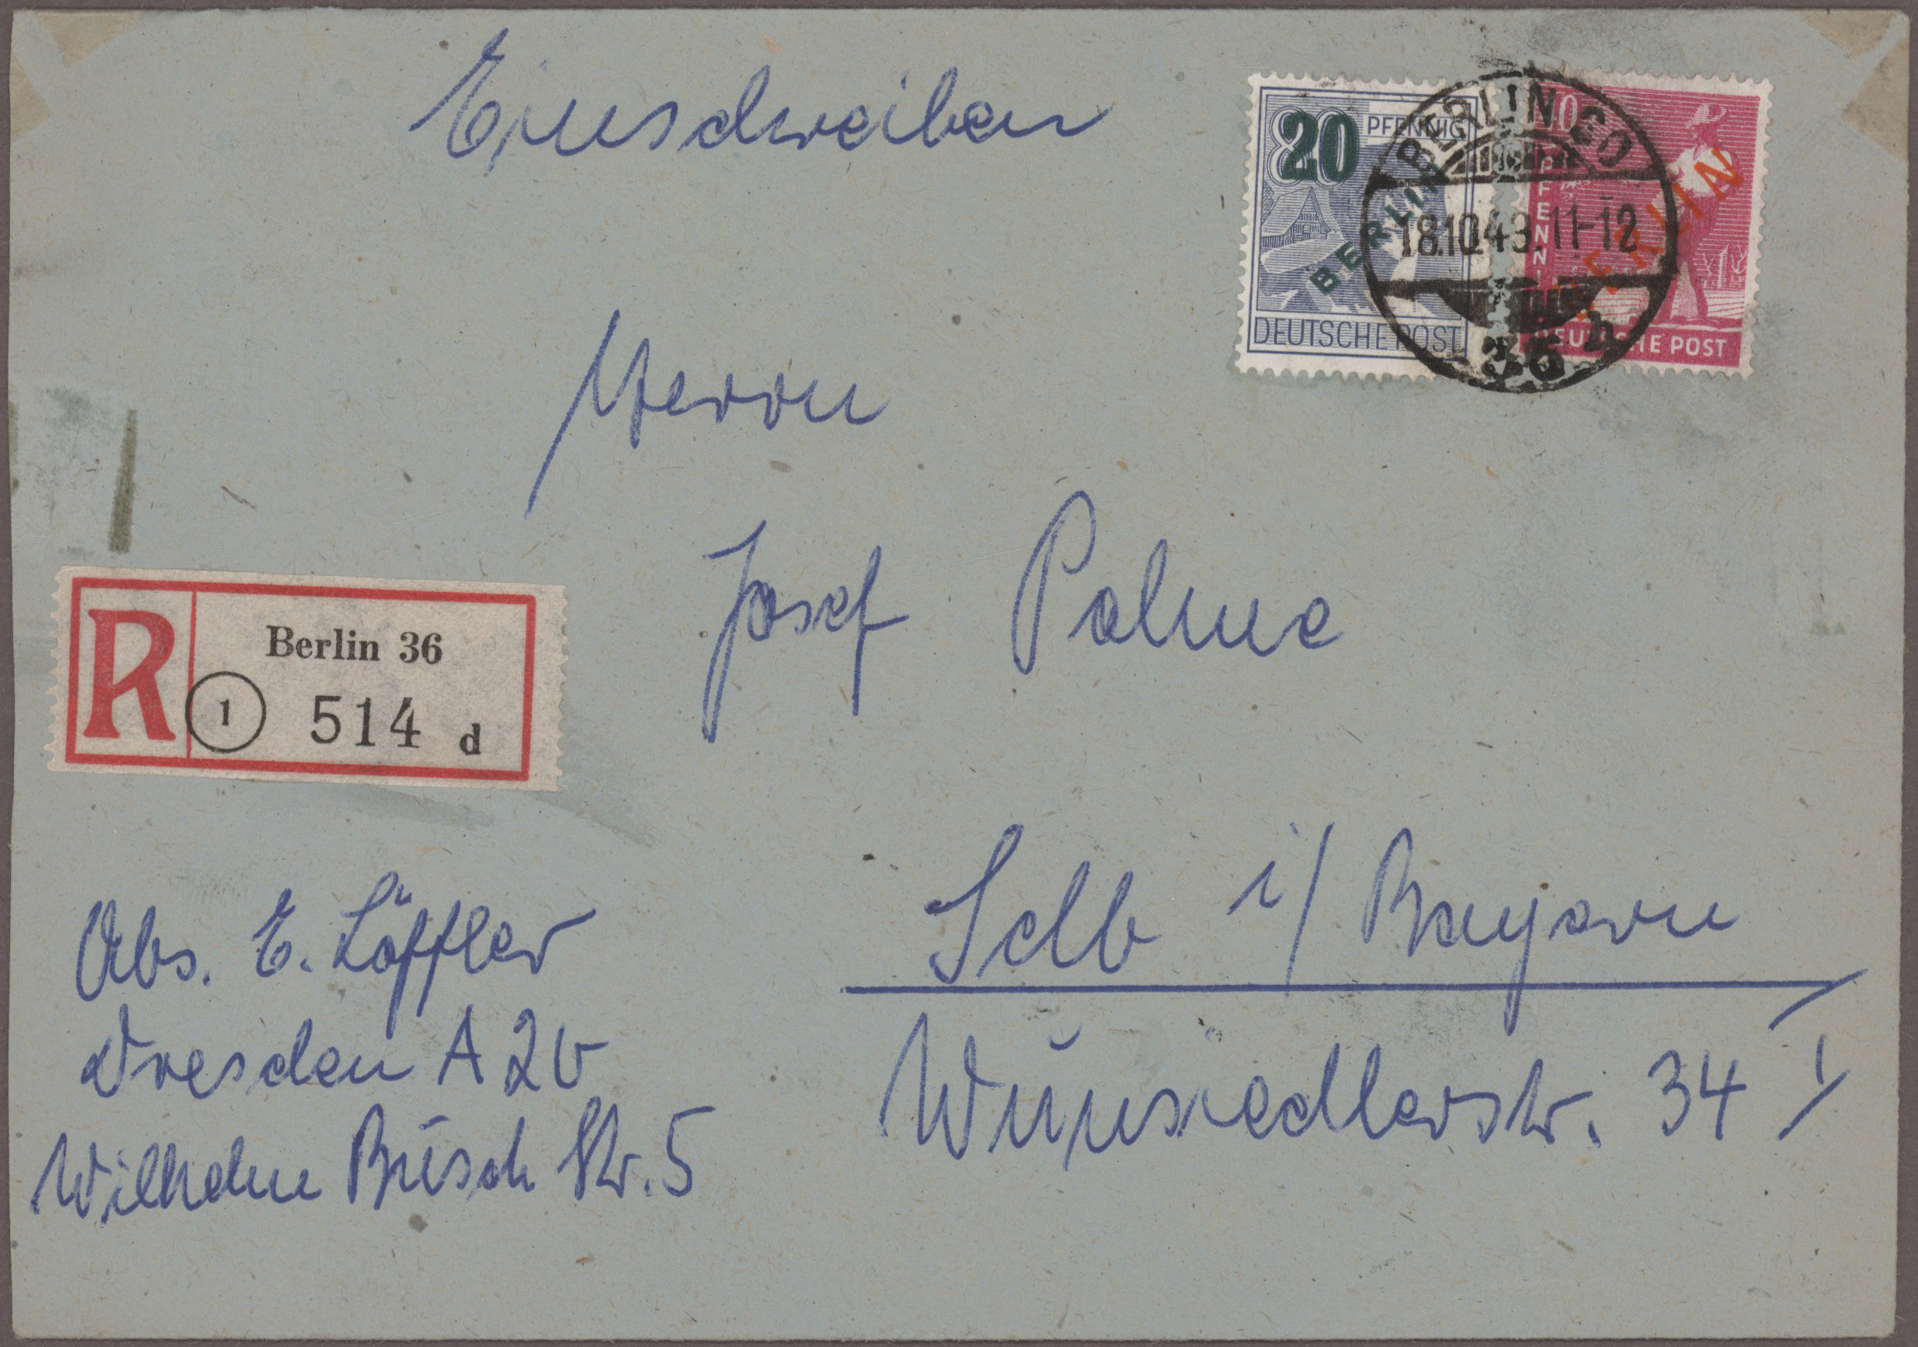 Einschreiben
20 PFENNIG
BERLIN
DEUTSCHE POST
40
PFENNIG
BERLIN
DEUTSCHE POST
BERLIN SO
18.10.49.11-12
36 h
Herrn
Josef Palme
R
Berlin 36
1 514 d
Selb i/ Bayern
Wunsiedlerstr. 34 I
Abs. E. Löffler
Dresden A 20
Wilhelm Busch Str. 5